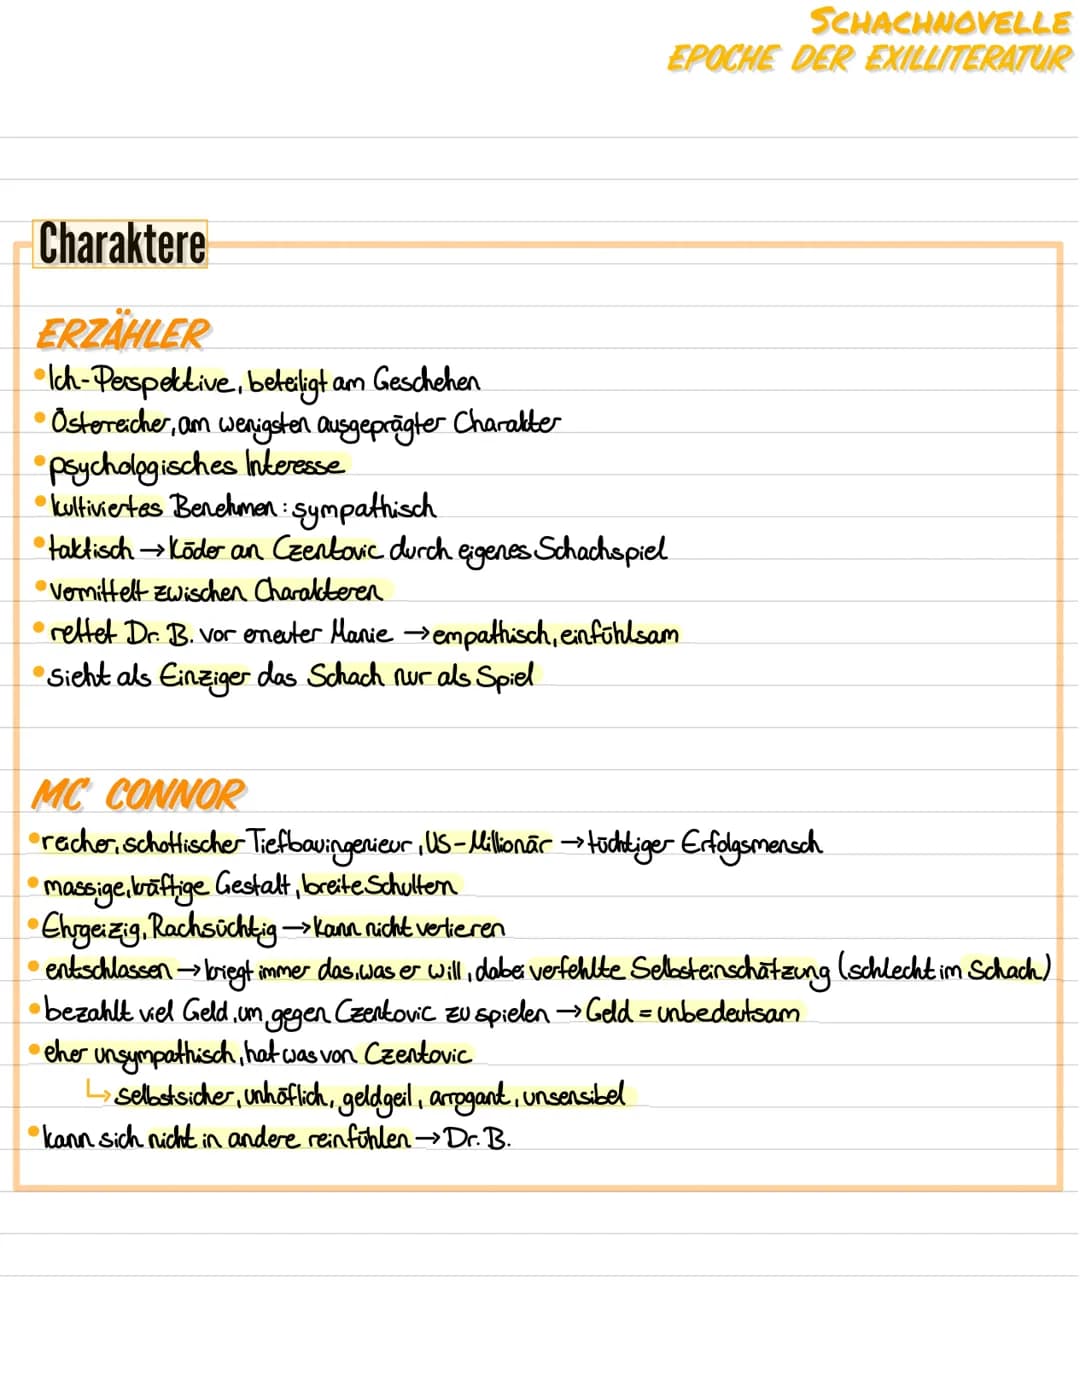 SCHACHNOVELLE
EPOCHE DER EXILLITERATUR
Charaktere
ERZÄHLER
•Ich-Perspektive, beteiligt am Geschehen
•Österreicher, am wenigsten ausgeprägter Charakter
•psychologisches Interesse
•kultiviertes Benehmen: sympathisch
•taktisch → Köder an Czentovic durch eigenes Schachspiel
•vermittelt zwischen Charakteren
•rettet Dr. B. vor erneuter Manie → empathisch, einfühlsam
•sieht als Einziger das Schach nur als Spiel
MC CONNOR
•reicher, schottischer Tiefbauingenieur, US-Millionär → tüchtiger Erfolgsmensch
•massige, kräftige Gestalt, breite Schultern
•Ehrgeizig, Rachsüchtig → kann nicht verlieren
•entschlossen → kriegt immer das, was er will, dabei verfehlte Selbsteinschätzung (schlecht im Schach)
•bezahlt viel Geld, um gegen Czentovic zu spielen → Geld = unbedeutsam
•eher unsympathisch, hat was von Czentovic
↳ selbstsicher, unhöflich, geldgeil, arrogant, unsensibel
•kann sich nicht in andere reinfühlen → Dr. B.